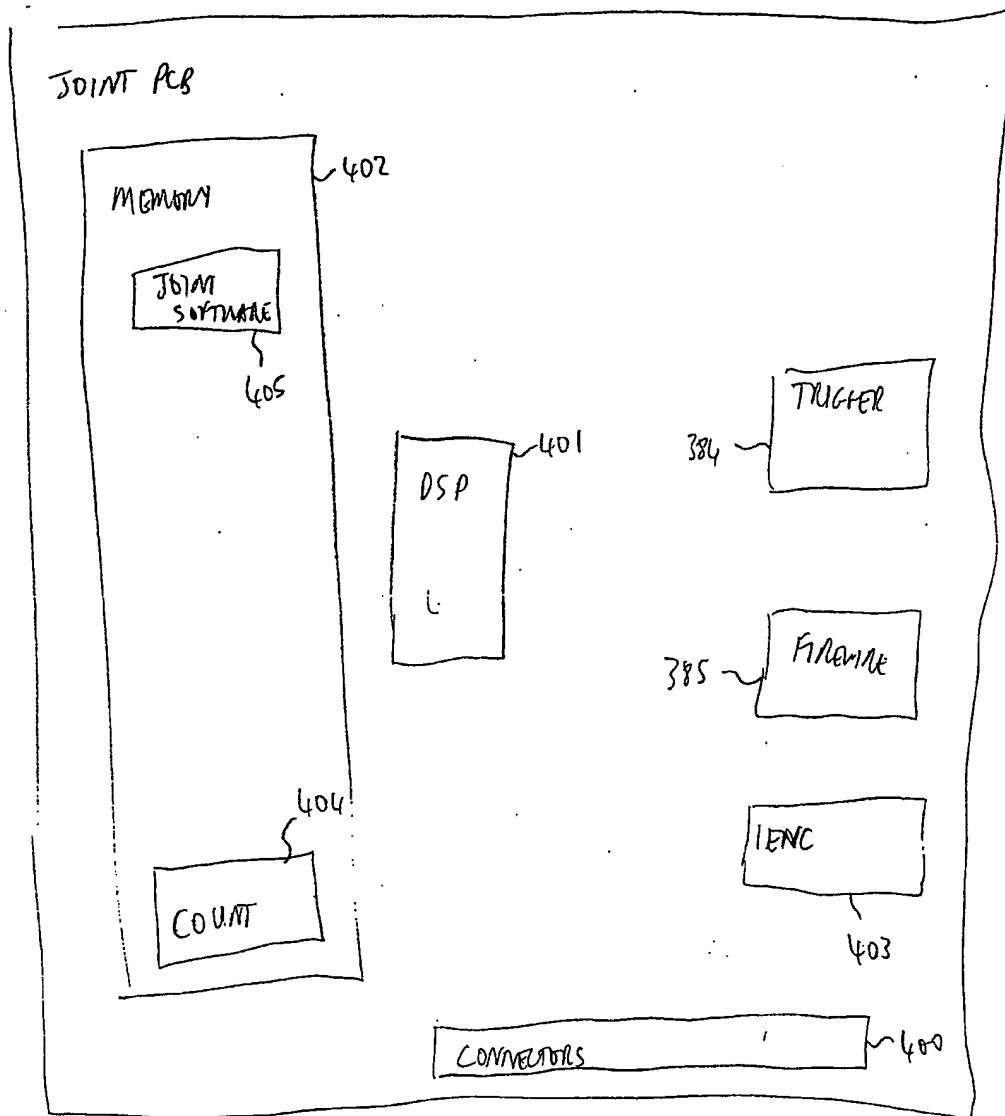 JOINT PCB
402
MEMORY
JOINT
SOFTWARE
405
401
DSP
TRIGGER
384
FIREWIRE
385
404
COUNT
IENC
403
CONNECTORS
400